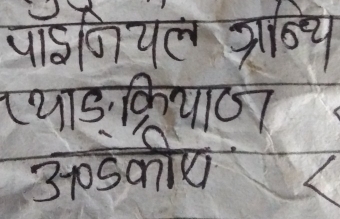 पाइनियल ग्रन्थि
प्याङ्क्रियाज
अण्डकोष